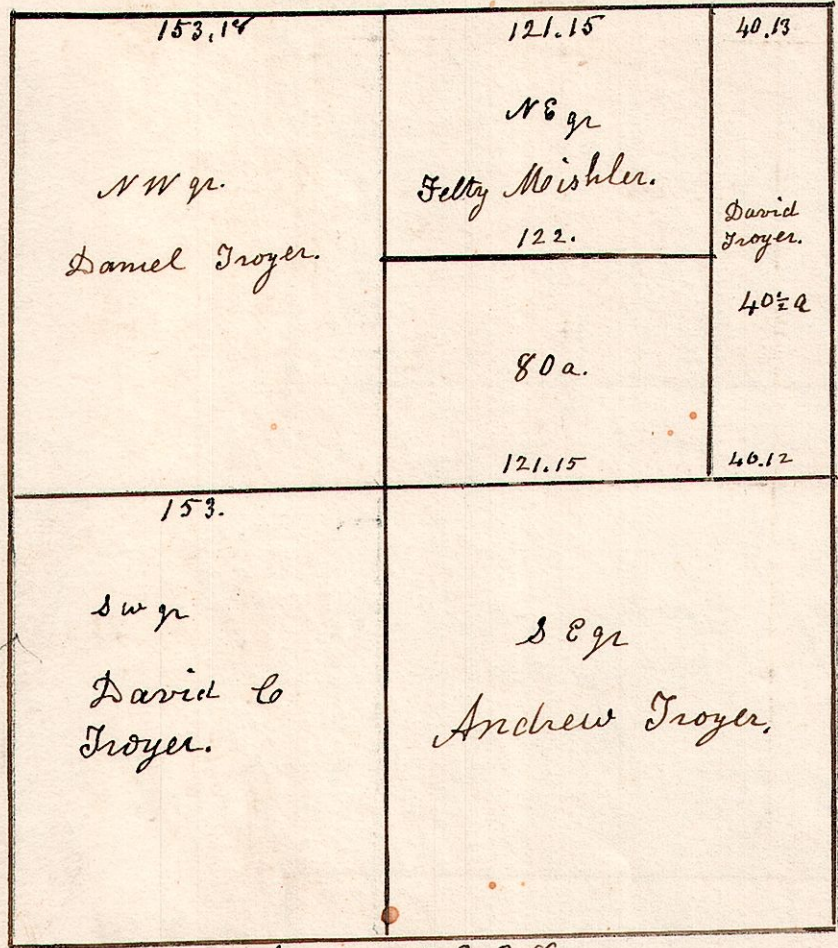 153.18
NW qr.
Daniel Troyer.
121.15
NE qr
Felty Mishler.
122.
40.13
David
Troyer.
40½ a
80 a.
121.15
40.12
153.
S W qr
David C
Troyer.
S E qr
Andrew Troyer.